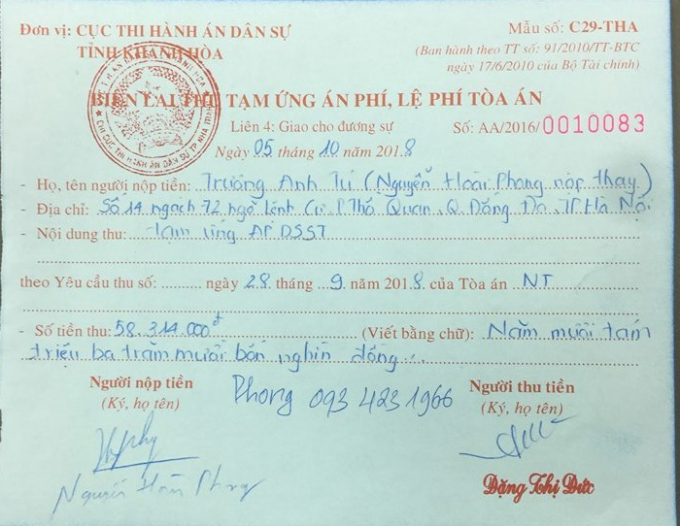 Đơn vị: CỤC THI HÀNH ÁN DÂN SỰ
TỈNH KHÁNH HÒA
Mẫu số: C29-THA
(Ban hành theo TT số: 91/2010/TT-BTC
ngày 17/6/2010 của Bộ Tài chính)
BIÊN LAI THU TẠM ỨNG ÁN PHÍ, LỆ PHÍ TÒA ÁN
Liên 4: Giao cho đương sự
Số: AA/2016/0010083
Ngày 05 tháng 10 năm 2018
- Họ, tên người nộp tiền: Trương Anh Tú (Nguyễn Hoài Phong nộp thay)
- Địa chỉ: Số 14 ngách 72 ngõ Lệnh Cư P Thổ Quan, Q Đống Đa, TP Hà Nội
- Nội dung thu: tạm ứng AP DSST
theo Yêu cầu thu số: ......... ngày 28 tháng 9 năm 2018 của Tòa án NT
- Số tiền thu: 58.314.000đ (Viết bằng chữ): Năm mươi tám
triệu ba trăm mười bốn nghìn đồng...
Người nộp tiền
(Ký, họ tên)
Phong 093 423 1966
Người thu tiền
(Ký, họ tên)
Nguyễn Hoài Phong
Đặng Thị Đức
CHI CỤC THI HÀNH ÁN DÂN SỰ TP NHA TRANG